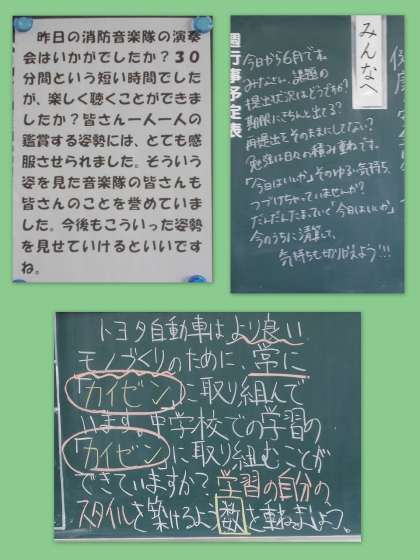 昨日の消防音楽隊の演奏
会はいかがでしたか?30
分間という短い時間でした
が、楽しく聴くことができま
したか?皆さん一人一人の
鑑賞する姿勢には、とても感
服させられました。そういう
姿を見た音楽隊の皆さんも
皆さんのことを誉めていま
した。今後もこういった姿勢
を見せていけるといいです
ね。
みんなへ
週行事予定表
今日から6月です。
みなさん、課題の
提出状況はどうですか?
期限にきちんと出てる?
再提出をそのままにしてない?
勉強は日々の積み重ねです。
「今日はいいか」そのゆるい気持ち、
つづけちゃっていませんか?
だんだんたまっていく「今日はいいか」
今のうちに清算して、
気持ちも切りかえよう!!!
トヨタ自動車はより良い
モノづくりのために、常に
「カイゼン」に取り組んで
います。中学校での学習の
「カイゼン」に取り組むことが
できていますか?学習の自分の
スタイルを築けるよう数を重ねましょう。